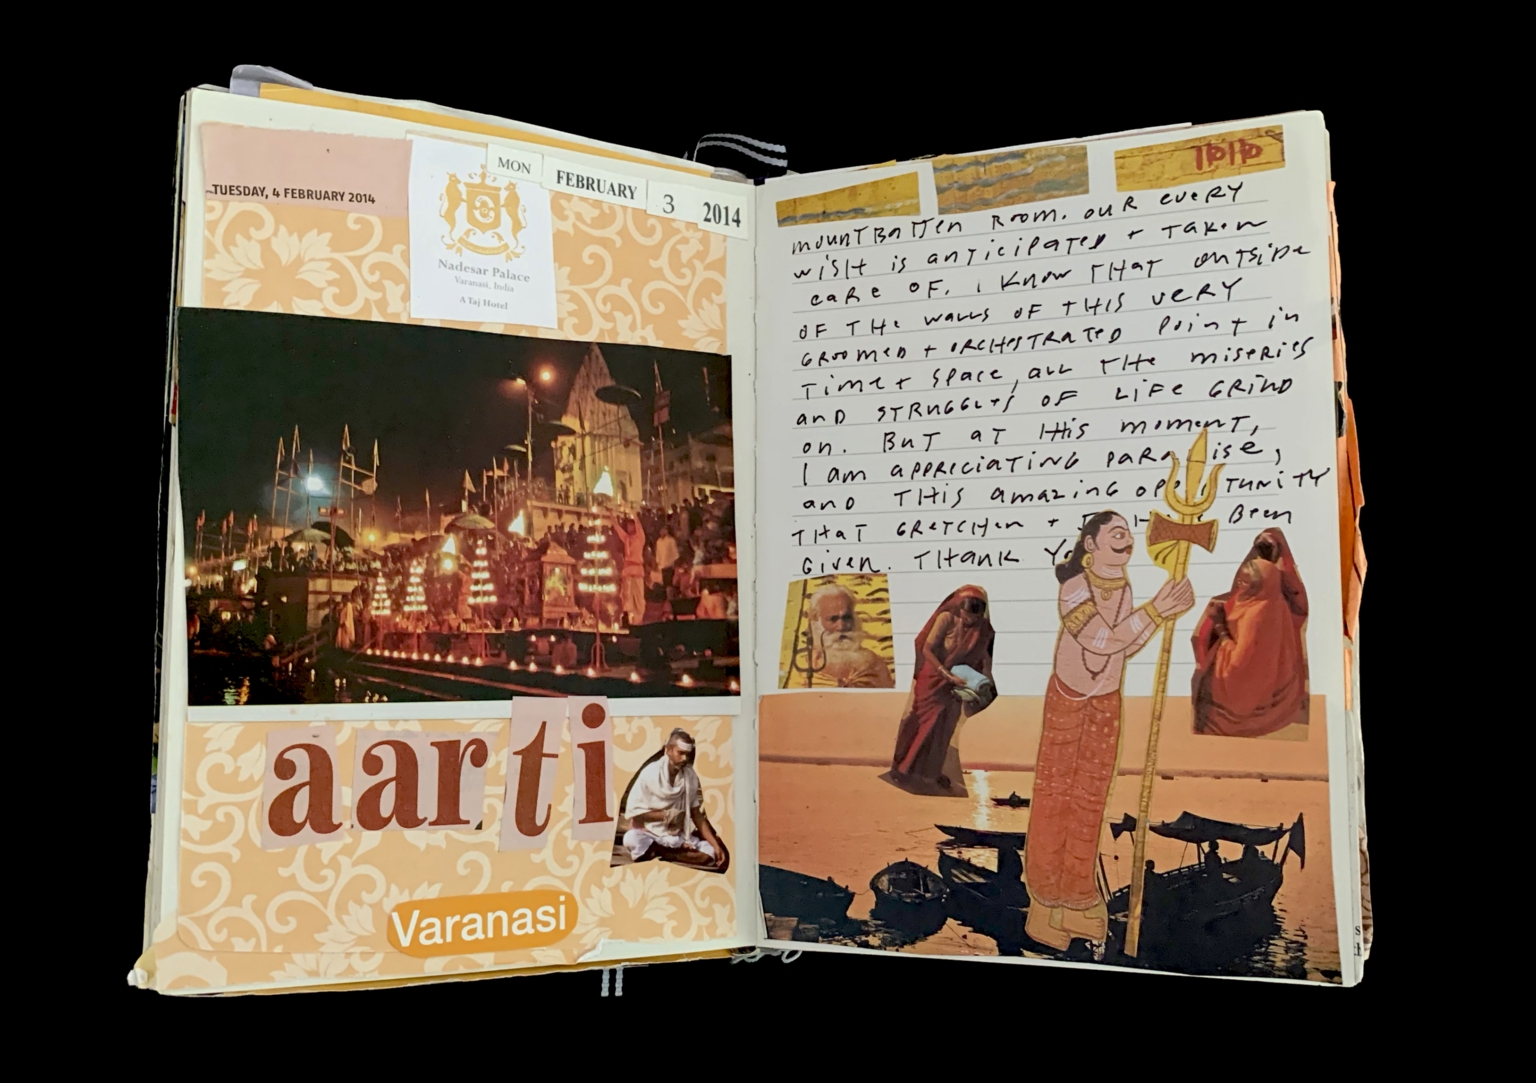 TUESDAY, 4 FEBRUARY 2014
MON
FEBRUARY
3
2014
Nadesar Palace
Varanasi, India
A Taj Hotel
aarti
Varanasi
mounTBaTTen Room. ouR eveRY
wisH is anTicipaTeD + Taken
caRe OF. i Know THaT ouTsiDe
OF THe walls OF THis veRY
GRoomeD + oRcHesTRaTeD poinT in
Time + space, all THe miseRies
anD sTRuGGles OF LiFe GRinD
on. BuT aT THis momenT,
I am appReciaTinG paRa ise,
anD THis amazinG opp TuniTY
THaT GReTcHen + Been
Given. THank